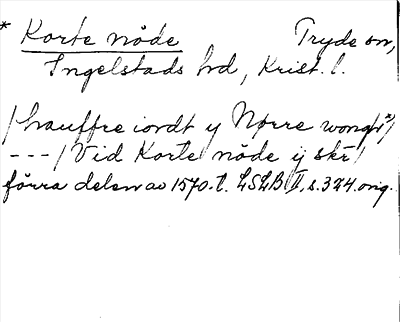 * Korte nöde Tryde sn,
Ingelstads hd, Krist. l.
/hauffre iordt y Nørre wong/
---/ Vid Korte nöde ij skr/
förra delen av 1570-t. LSLB II, s. 324. orig.